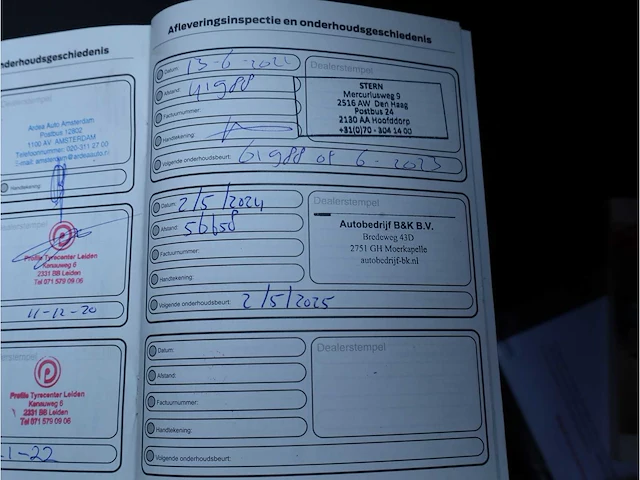 nderhoudsgeschiedenis
erstempel
Ardea Auto Amsterdam
Postbus 12802
1100 AV AMSTERDAM
Telefoonnummer: 020-311 27 00
E-mail: amsterdam@ardeaauto.nl
Handtekening:
Dealerstempel
Profile Tyrecenter Leiden
Kanaalweg 6
2331 BB Leiden
Tel 071 579 09 06
11-12-20
erstempel
Profile Tyrecenter Leiden
Kanaalweg 6
2331 BB Leiden
Tel 071 579 09 06
-1-22
Afleveringsinspectie en onderhoudsgeschiedenis
Datum: 13-6-2022
Afstand: 41988
Factuurnummer:
Handtekening:
Volgende onderhoudsbeurt: 61988 of 6-2023
Dealerstempel
STERN
Mercuriusweg 9
2516 AW Den Haag
Postbus 24
2130 AA Hoofddorp
+31(0)70 - 304 14 00
Datum: 2/5/2024
Afstand: 56658
Factuurnummer:
Handtekening:
Volgende onderhoudsbeurt: 2/5/2025
Dealerstempel
Autobedrijf B&K B.V.
Bredeweg 43D
2751 GH Moerkapelle
autobedrijf-bk.nl
Datum:
Afstand:
Factuurnummer:
Handtekening:
Volgende onderhoudsbeurt:
Dealerstempel